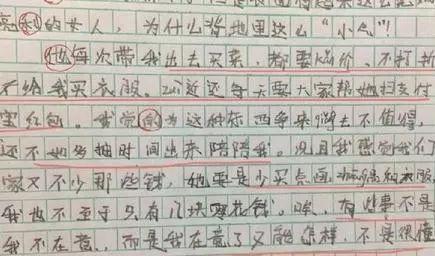 亮利的女人，为什么背地里这么“小气”！
她每次带我出去买菜，都要减价、不打折
不给我买衣服。最近还每天要大家帮她扫支付
宝红包。我觉的为这种东西争来争去不值得，
还不如多抽时间出来陪陪我。况且我感觉我们
家又不少那些钱，她要是少买点面
我也不至于只有几块零花钱。唉，有些事不是
我不在意，而是我在意了又能怎样，不是很懂